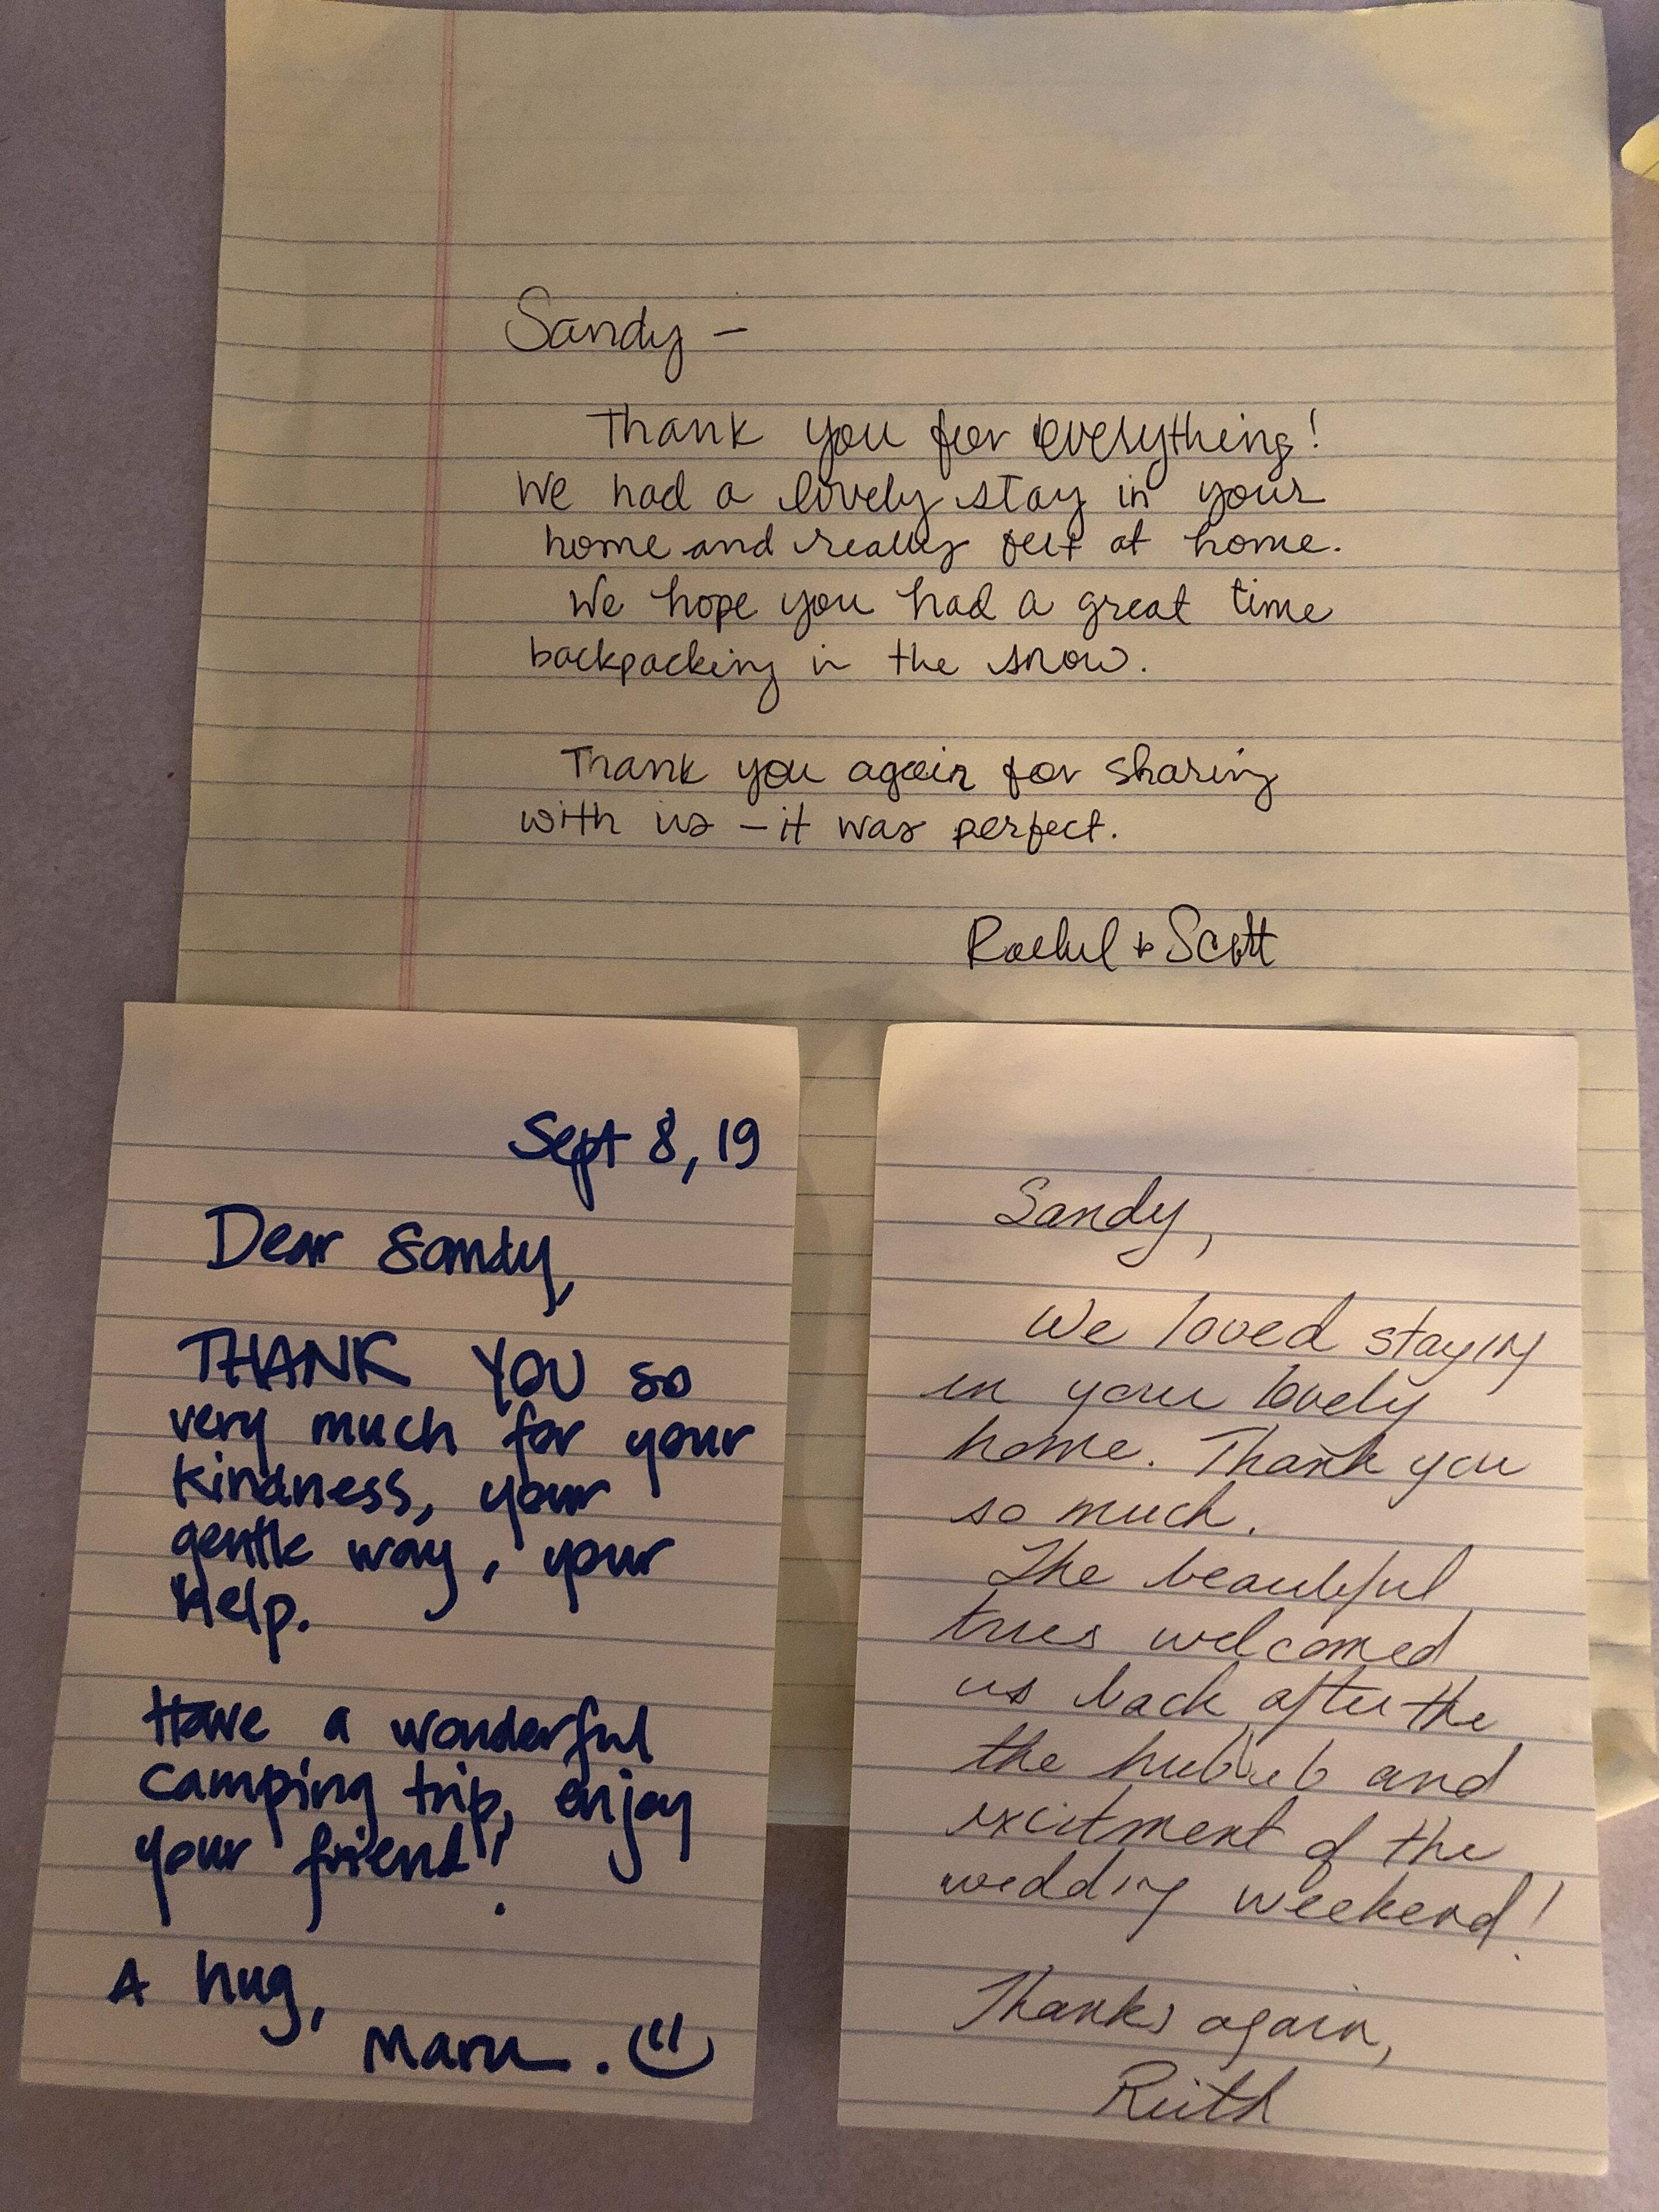 Sandy –
Thank you for everything!
We had a lovely stay in your
home and really felt at home.
We hope you had a great time
backpacking in the snow.
Thank you again for sharing
with us – it was perfect.
Rachel & Scott
Sept 8, 19
Dear Sandy,
THANK YOU so
very much for your
kindness, your
gentle way, your
help.
Have a wonderful
camping trip, enjoy
your friend!
A hug,
Maru. :)
Sandy,
We loved staying
in your lovely
home. Thank you
so much.
The beautiful
trees welcomed
us back after the
the hubbub and
excitment of the
wedding weekend!
Thanks again,
Ruth